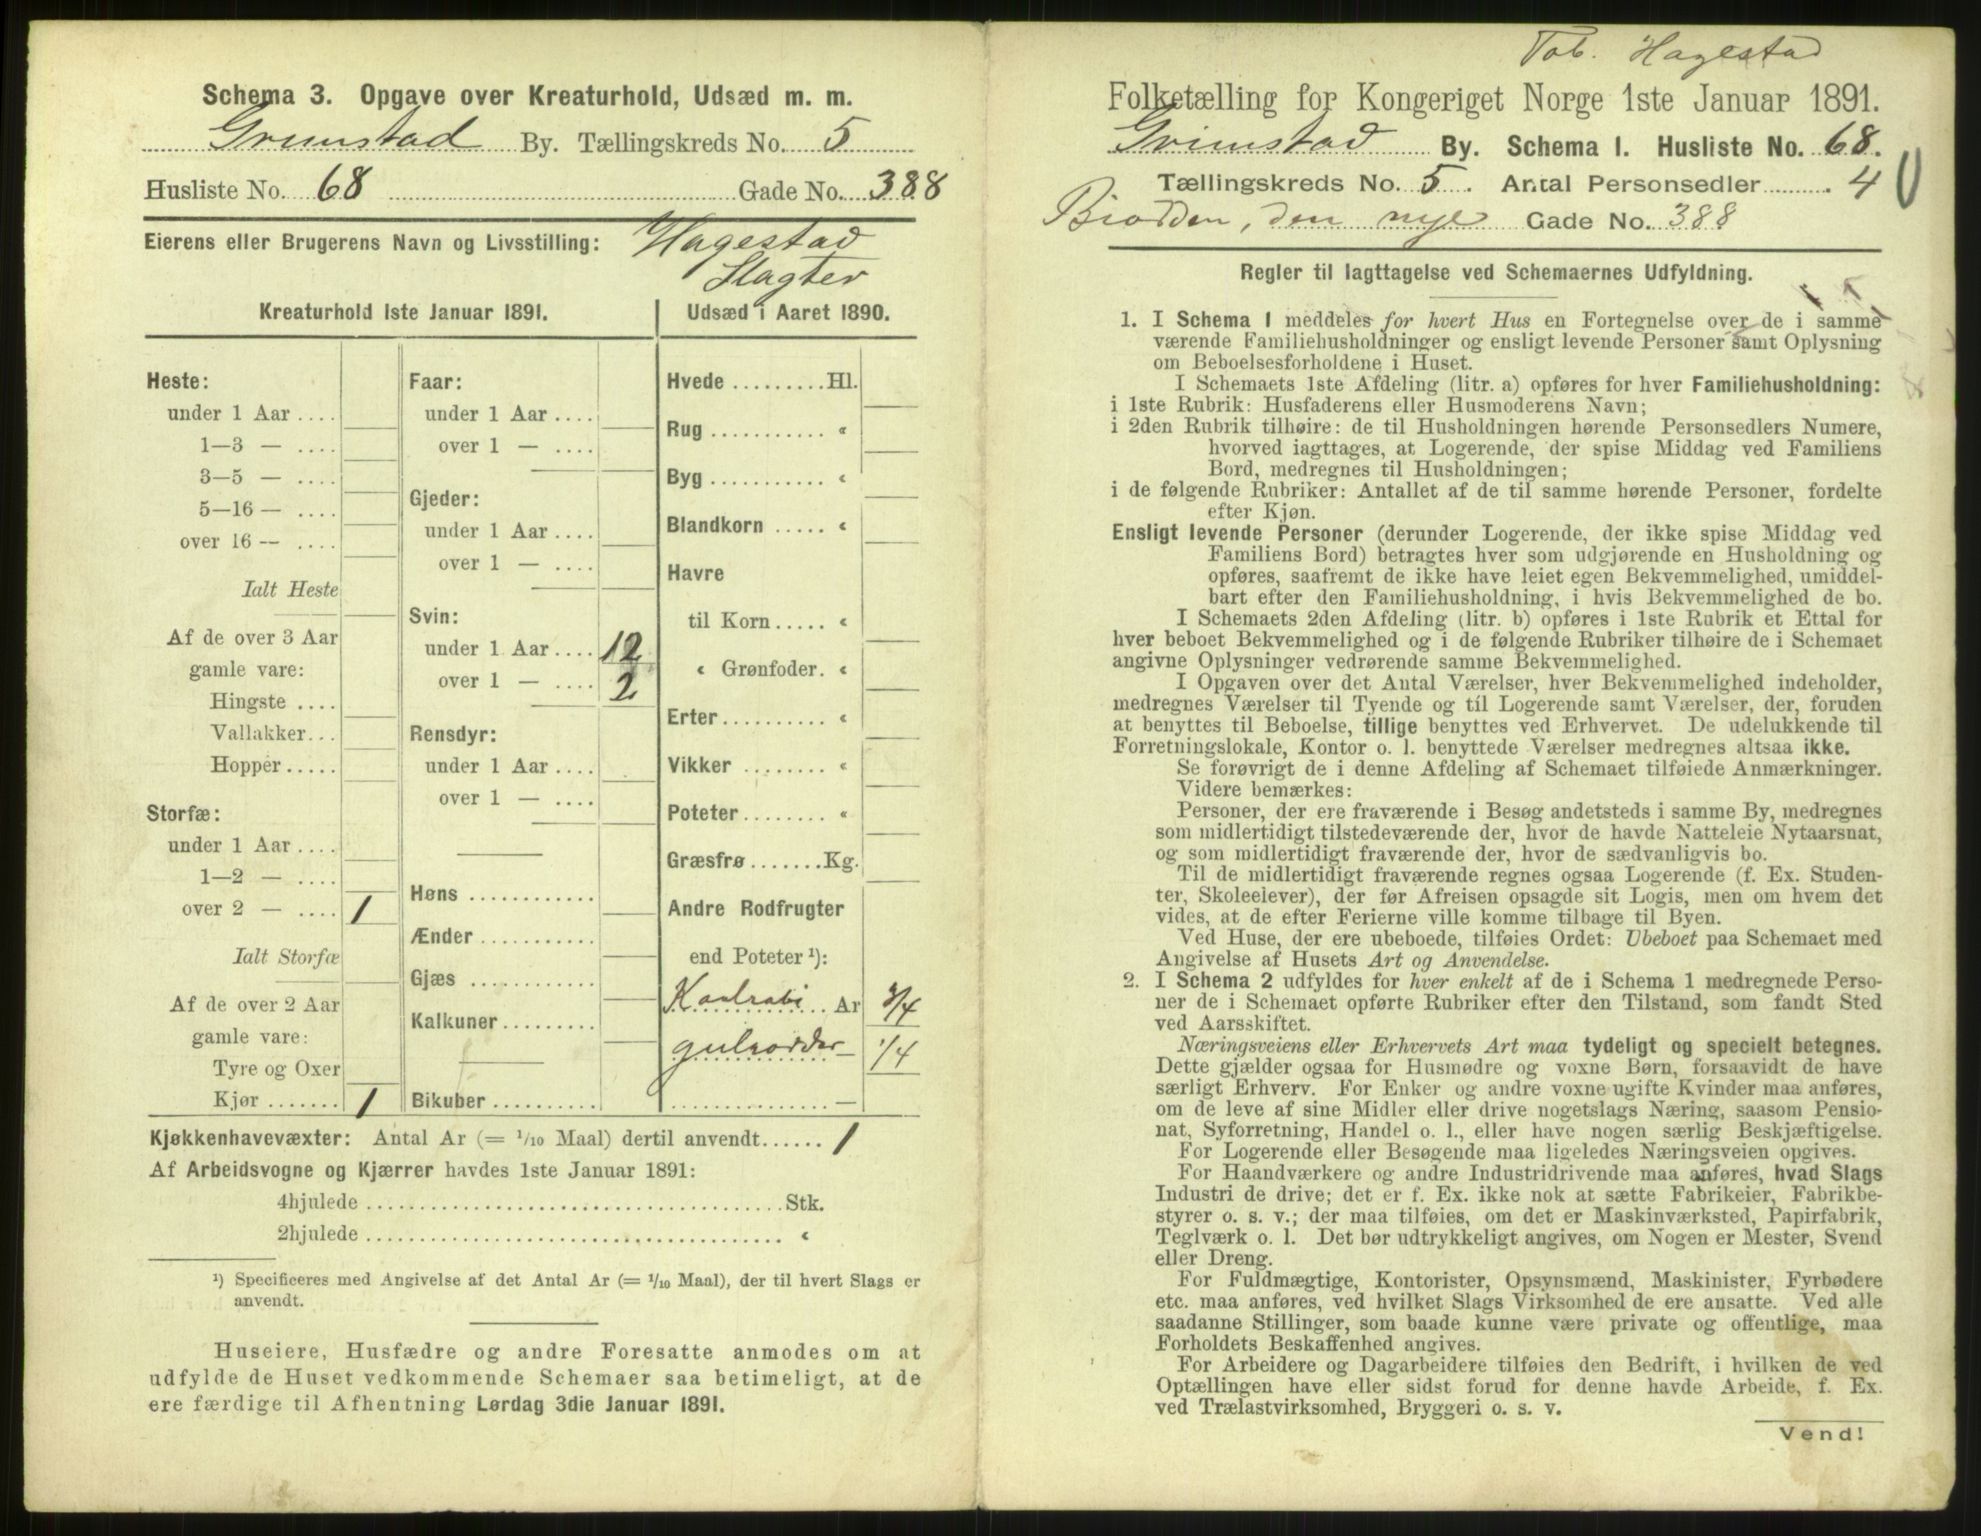 Schema 3. Opgave over Kreaturhold, Udsæd m. m.
Grimstad By. Tællingskreds No. 5
Husliste No. 68 Gade No. 388
Eierens eller Brugerens Navn og Livsstilling: Hagestad
Slagter
Kreaturhold 1ste Januar 1891.
Heste:
under 1 Aar ....
1—3 — ....
3—5 — ....
5—16 — ....
over 16 — ....
Ialt Heste
Af de over 3 Aar
gamle vare:
Hingste ....
Vallakker...
Hopper.....
Storfæ:
under 1 Aar ....
1—2 — ....
over 2 — .... 1
Ialt Storfæ
Af de over 2 Aar
gamle vare:
Tyre og Oxer
Kjør ....... 1
Faar:
under 1 Aar ....
over 1 — ....
Gjeder:
under 1 Aar ....
over 1 — ....
Svin:
under 1 Aar .... 12
over 1 — .... 2
Rensdyr:
under 1 Aar ....
over 1 — ....
Høns ............
Ænder...........
Gjæs ............
Kalkuner.........
Bikuber..........
Udsæd i Aaret 1890.
Hvede .........Hl.
Rug ........... «
Byg ........... «
Blandkorn ..... «
Havre
til Korn..... «
« Grønfoder. «
Erter.......... «
Vikker ........ «
Poteter........ «
Græsfrø .......Kg.
Andre Rodfrugter
end Poteter ¹):
Kaalrabi Ar 3/4
gulrødder — 1/4
—
Kjøkkenhavevæxter: Antal Ar (= 1/10 Maal) dertil anvendt...... 1
Af Arbeidsvogne og Kjærrer havdes 1ste Januar 1891:
4hjulede ........................................Stk.
2hjulede ........................................ «
¹) Specificeres med Angivelse af det Antal Ar (= 1/10 Maal), der til hvert Slags er
anvendt.
Huseiere, Husfædre og andre Foresatte anmodes om at
udfylde de Huset vedkommende Schemaer saa betimeligt, at de
ere færdige til Afhentning Lørdag 3die Januar 1891.
Tob. Hagestad
Folketælling for Kongeriget Norge 1ste Januar 1891.
Grimstad By. Schema 1. Husliste No. 68.
Tællingskreds No. 5. Antal Personsedler ....... 4
Biodden, den nye Gade No. 388
Regler til Iagttagelse ved Schemaernes Udfyldning.
1. I Schema 1 meddeles for hvert Hus en Fortegnelse over de i samme
værende Familiehusholdninger og ensligt levende Personer samt Oplysning
om Beboelsesforholdene i Huset.
I Schemaets 1ste Afdeling (litr. a) opføres for hver Familiehusholdning:
i 1ste Rubrik: Husfaderens eller Husmoderens Navn;
i 2den Rubrik tilhøire: de til Husholdningen hørende Personsedlers Numere,
hvorved iagttages, at Logerende, der spise Middag ved Familiens
Bord, medregnes til Husholdningen;
i de følgende Rubriker: Antallet af de til samme hørende Personer, fordelte
efter Kjøn.
Ensligt levende Personer (derunder Logerende, der ikke spise Middag ved
Familiens Bord) betragtes hver som udgjørende en Husholdning og
opføres, saafremt de ikke have leiet egen Bekvemmelighed, umiddel-
bart efter den Familiehusholdning, i hvis Bekvemmelighed de bo.
I Schemaets 2den Afdeling (litr. b) opføres i 1ste Rubrik et Ettal for
hver beboet Bekvemmelighed og i de følgende Rubriker tilhøire de i Schemaet
angivne Oplysninger vedrørende samme Bekvemmelighed.
I Opgaven over det Antal Værelser, hver Bekvemmelighed indeholder,
medregnes Værelser til Tyende og til Logerende samt Værelser, der, foruden
at benyttes til Beboelse, tillige benyttes ved Erhvervet. De udelukkende til
Forretningslokale, Kontor o. l. benyttede Værelser medregnes altsaa ikke.
Se forøvrigt de i denne Afdeling af Schemaet tilføiede Anmærkninger.
Videre bemærkes:
Personer, der ere fraværende i Besøg andetsteds i samme By, medregnes
som midlertidigt tilstedeværende der, hvor de havde Natteleie Nytaarsnat,
og som midlertidigt fraværende der, hvor de sædvanligvis bo.
Til de midlertidigt fraværende regnes ogsaa Logerende (f. Ex. Studen-
ter, Skoleelever), der før Afreisen opsagde sit Logis, men om hvem det
vides, at de efter Ferierne ville komme tilbage til Byen.
Ved Huse, der ere ubeboede, tilføies Ordet: Ubeboet paa Schemaet med
Angivelse af Husets Art og Anvendelse.
2. I Schema 2 udfyldes for hver enkelt af de i Schema 1 medregnede Perso-
ner de i Schemaet opførte Rubriker efter den Tilstand, som fandt Sted
ved Aarsskiftet.
Næringsveiens eller Erhvervets Art maa tydeligt og specielt betegnes.
Dette gjælder ogsaa for Husmødre og voxne Børn, forsaavidt de have
særligt Erhverv. For Enker og andre voxne ugifte Kvinder maa anføres,
om de leve af sine Midler eller drive nogetslags Næring, saasom Pensio-
nat, Syforretning, Handel o. l., eller have nogen særlig Beskjæftigelse.
For Logerende eller Besøgende maa ligeledes Næringsveien opgives.
For Haandværkere og andre Industridrivende maa anføres, hvad Slags
Industri de drive; det er f. Ex. ikke nok at sætte Fabrikeier, Fabrikbe-
styrer o. s. v.; der maa tilføies, om det er Maskinværksted, Papirfabrik,
Teglværk o. l. Det bør udtrykkeligt angives, om Nogen er Mester, Svend
eller Dreng.
For Fuldmægtige, Kontorister, Opsynsmænd, Maskinister, Fyrbødere
etc. maa anføres, ved hvilket Slags Virksomhed de ere ansatte. Ved alle
saadanne Stillinger, som baade kunne være private og offentlige, maa
Forholdets Beskaffenhed angives.
For Arbeidere og Dagarbeidere tilføies den Bedrift, i hvilken de ved
Optællingen have eller sidst forud for denne havde Arbeide, f. Ex.
ved Trælastvirksomhed, Bryggeri o. s. v.
Vend!